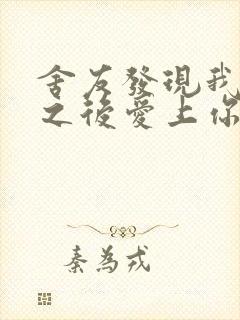 舍友發現我
之後愛上你
秦為戎